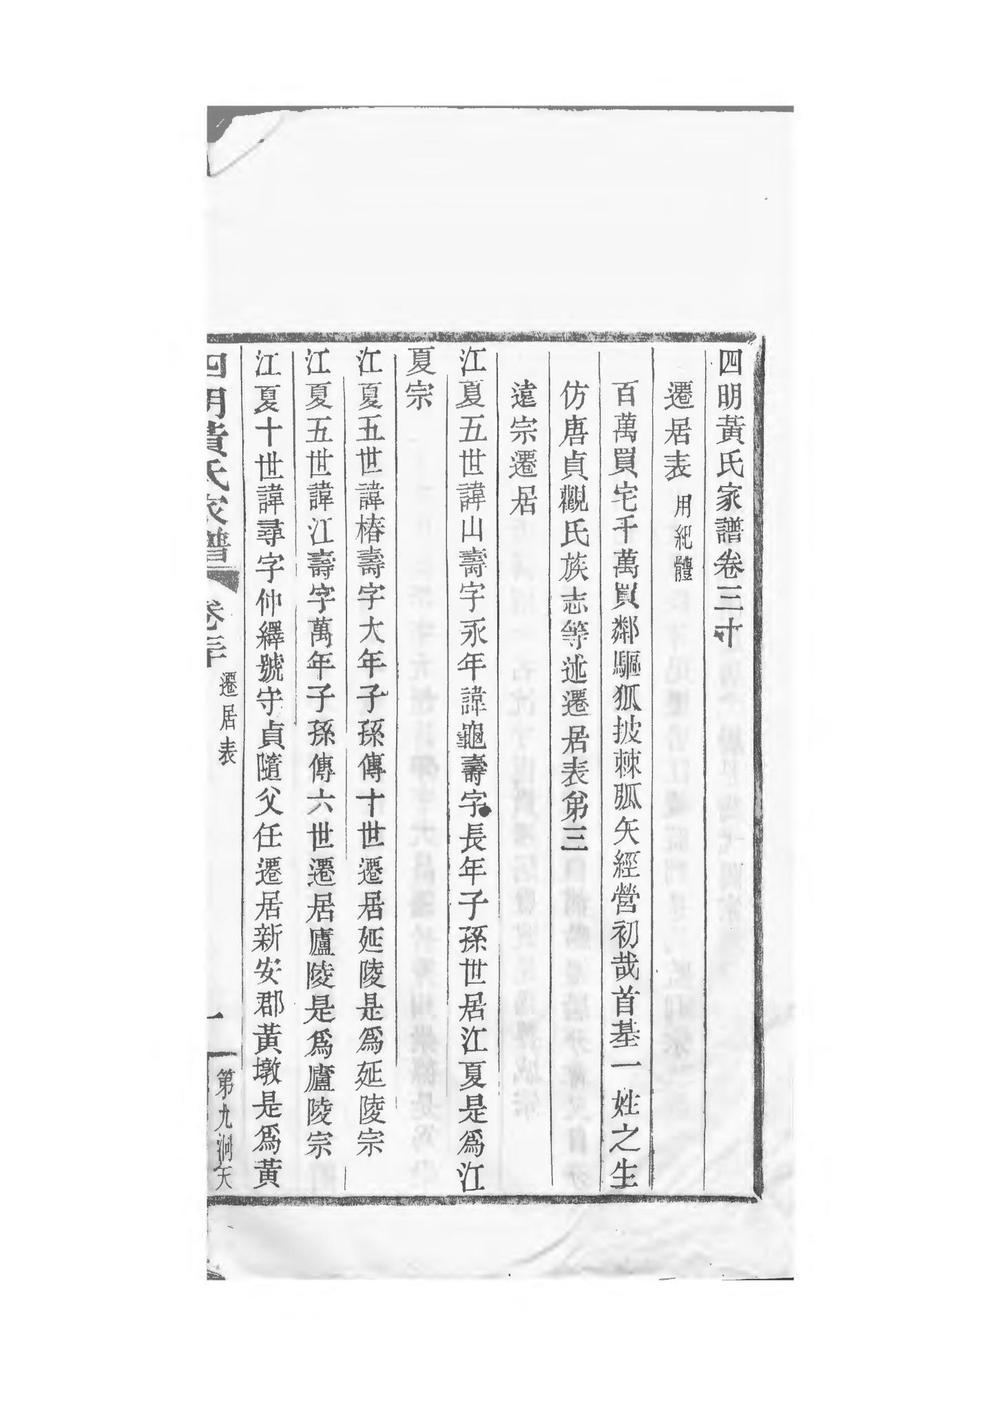 四明黃氏家譜卷三十
遷居表 用紀體
百萬買宅千萬買鄰驅狐披棘弧矢經營初哉首基一姓之生
仿唐貞觀氏族志等述遷居表第三
遠宗遷居
江夏五世諱山壽字永年諱龜壽字長年子孫世居江夏是爲江
夏宗
江夏五世諱椿壽字大年子孫傳十世遷居延陵是爲延陵宗
江夏五世諱江壽字萬年子孫傳六世遷居廬陵是爲廬陵宗
江夏十世諱尋字仲繹號守貞隨父任遷居新安郡黃墩是爲黃
四明黃氏家譜 卷三十 遷居表 一 第九洞天